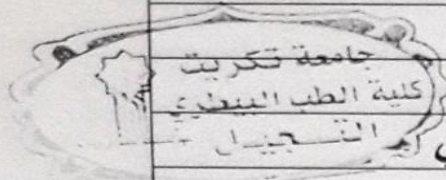 جامعة تكريت
كلية الطب البيطري
التسجيل